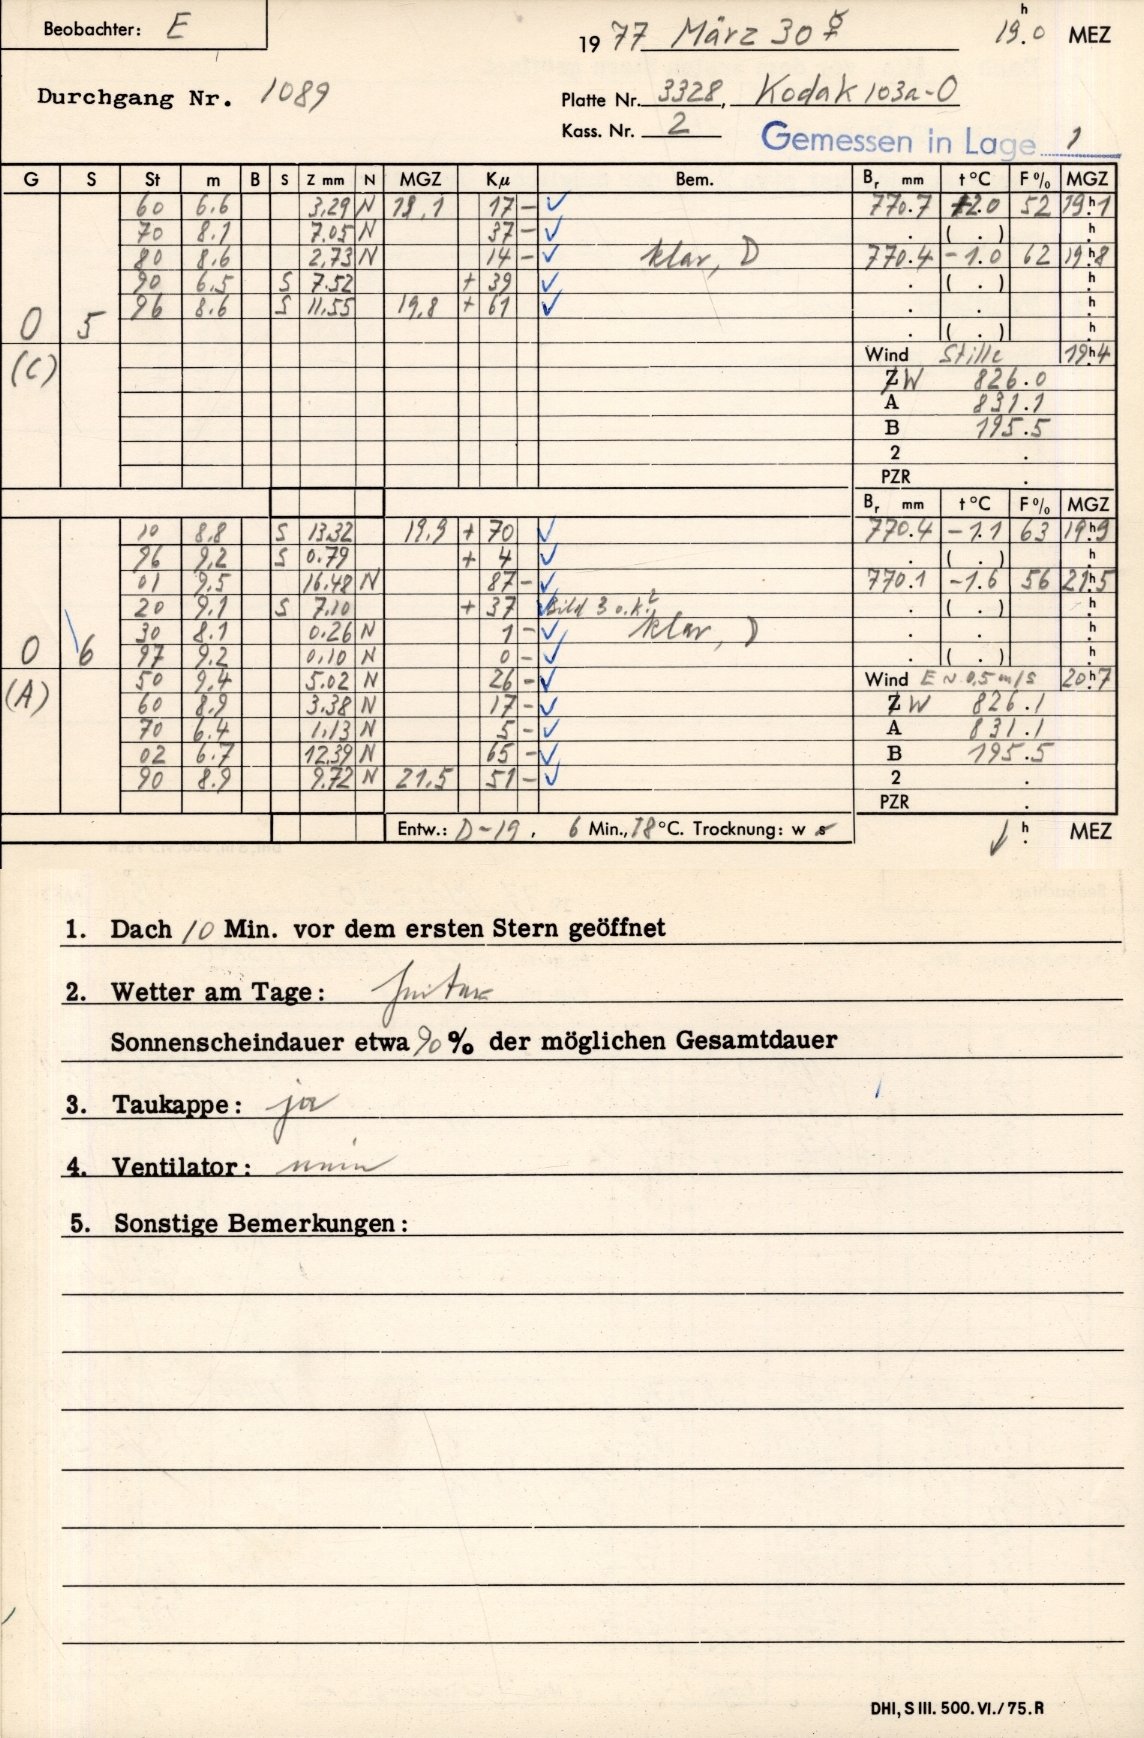 Beobachter: E
1977 März 30 ☿ 19.h0 MEZ
Durchgang Nr. 1089
Platte Nr. 3328, Kodak 103a-O
Kass. Nr. 2
Gemessen in Lage 1
G S St m B S Z mm N MGZ Kμ Bem. Br mm t °C F % MGZ
60 6.6 3.29 N 19,1 17 - ✓ 770.7 +2.0 52 19h1
70 8.1 7.05 N 37 - ✓ . ( . ) h
80 8.6 2.73 N 14 - ✓ klar, D 770.4 -1.0 62 19h8
90 6.5 S 7.52 + 39 ✓ . ( . ) h
0 5 96 8.6 S 11.55 19,8 + 61 ✓ . . h
. ( . ) h
(C) Wind Stille 19h4
Z W 826.0
A 831.1
B 195.5
2 .
PZR .
Br mm t °C F % MGZ
10 8.8 S 13.32 19,9 + 70 ✓ 770.4 -1.1 63 19h9
96 9.2 S 0.79 + 4 ✓ . ( . ) h
01 9.5 16.48 N 87 - ✓ 770.1 -1.6 56 21h5
20 9.1 S 7.10 + 37 ✓ Bild 3 o.k.? . ( . ) h
30 8.1 0.26 N 1 - ✓ klar, D . . h
0 6 97 9.2 0.10 N 0 - ✓ . ( . ) h
(A) 50 9.4 5.02 N 26 - ✓ Wind E ~ 0,5 m/s 20h7
60 8.9 3.38 N 17 - ✓ Z W 826.1
70 6.4 1.13 N 5 - ✓ A 831.1
02 6.7 12.39 N 65 - ✓ B 195.5
90 8.9 9.72 N 21,5 51 - ✓ 2 .
PZR .
Entw.: D-19, 6 Min., 18 °C. Trocknung: w s h MEZ
1. Dach 10 Min. vor dem ersten Stern geöffnet
2. Wetter am Tage: heiter
Sonnenscheindauer etwa 90 % der möglichen Gesamtdauer
3. Taukappe: ja
4. Ventilator: nein
5. Sonstige Bemerkungen:
DHI, S III. 500. VI./ 75. R